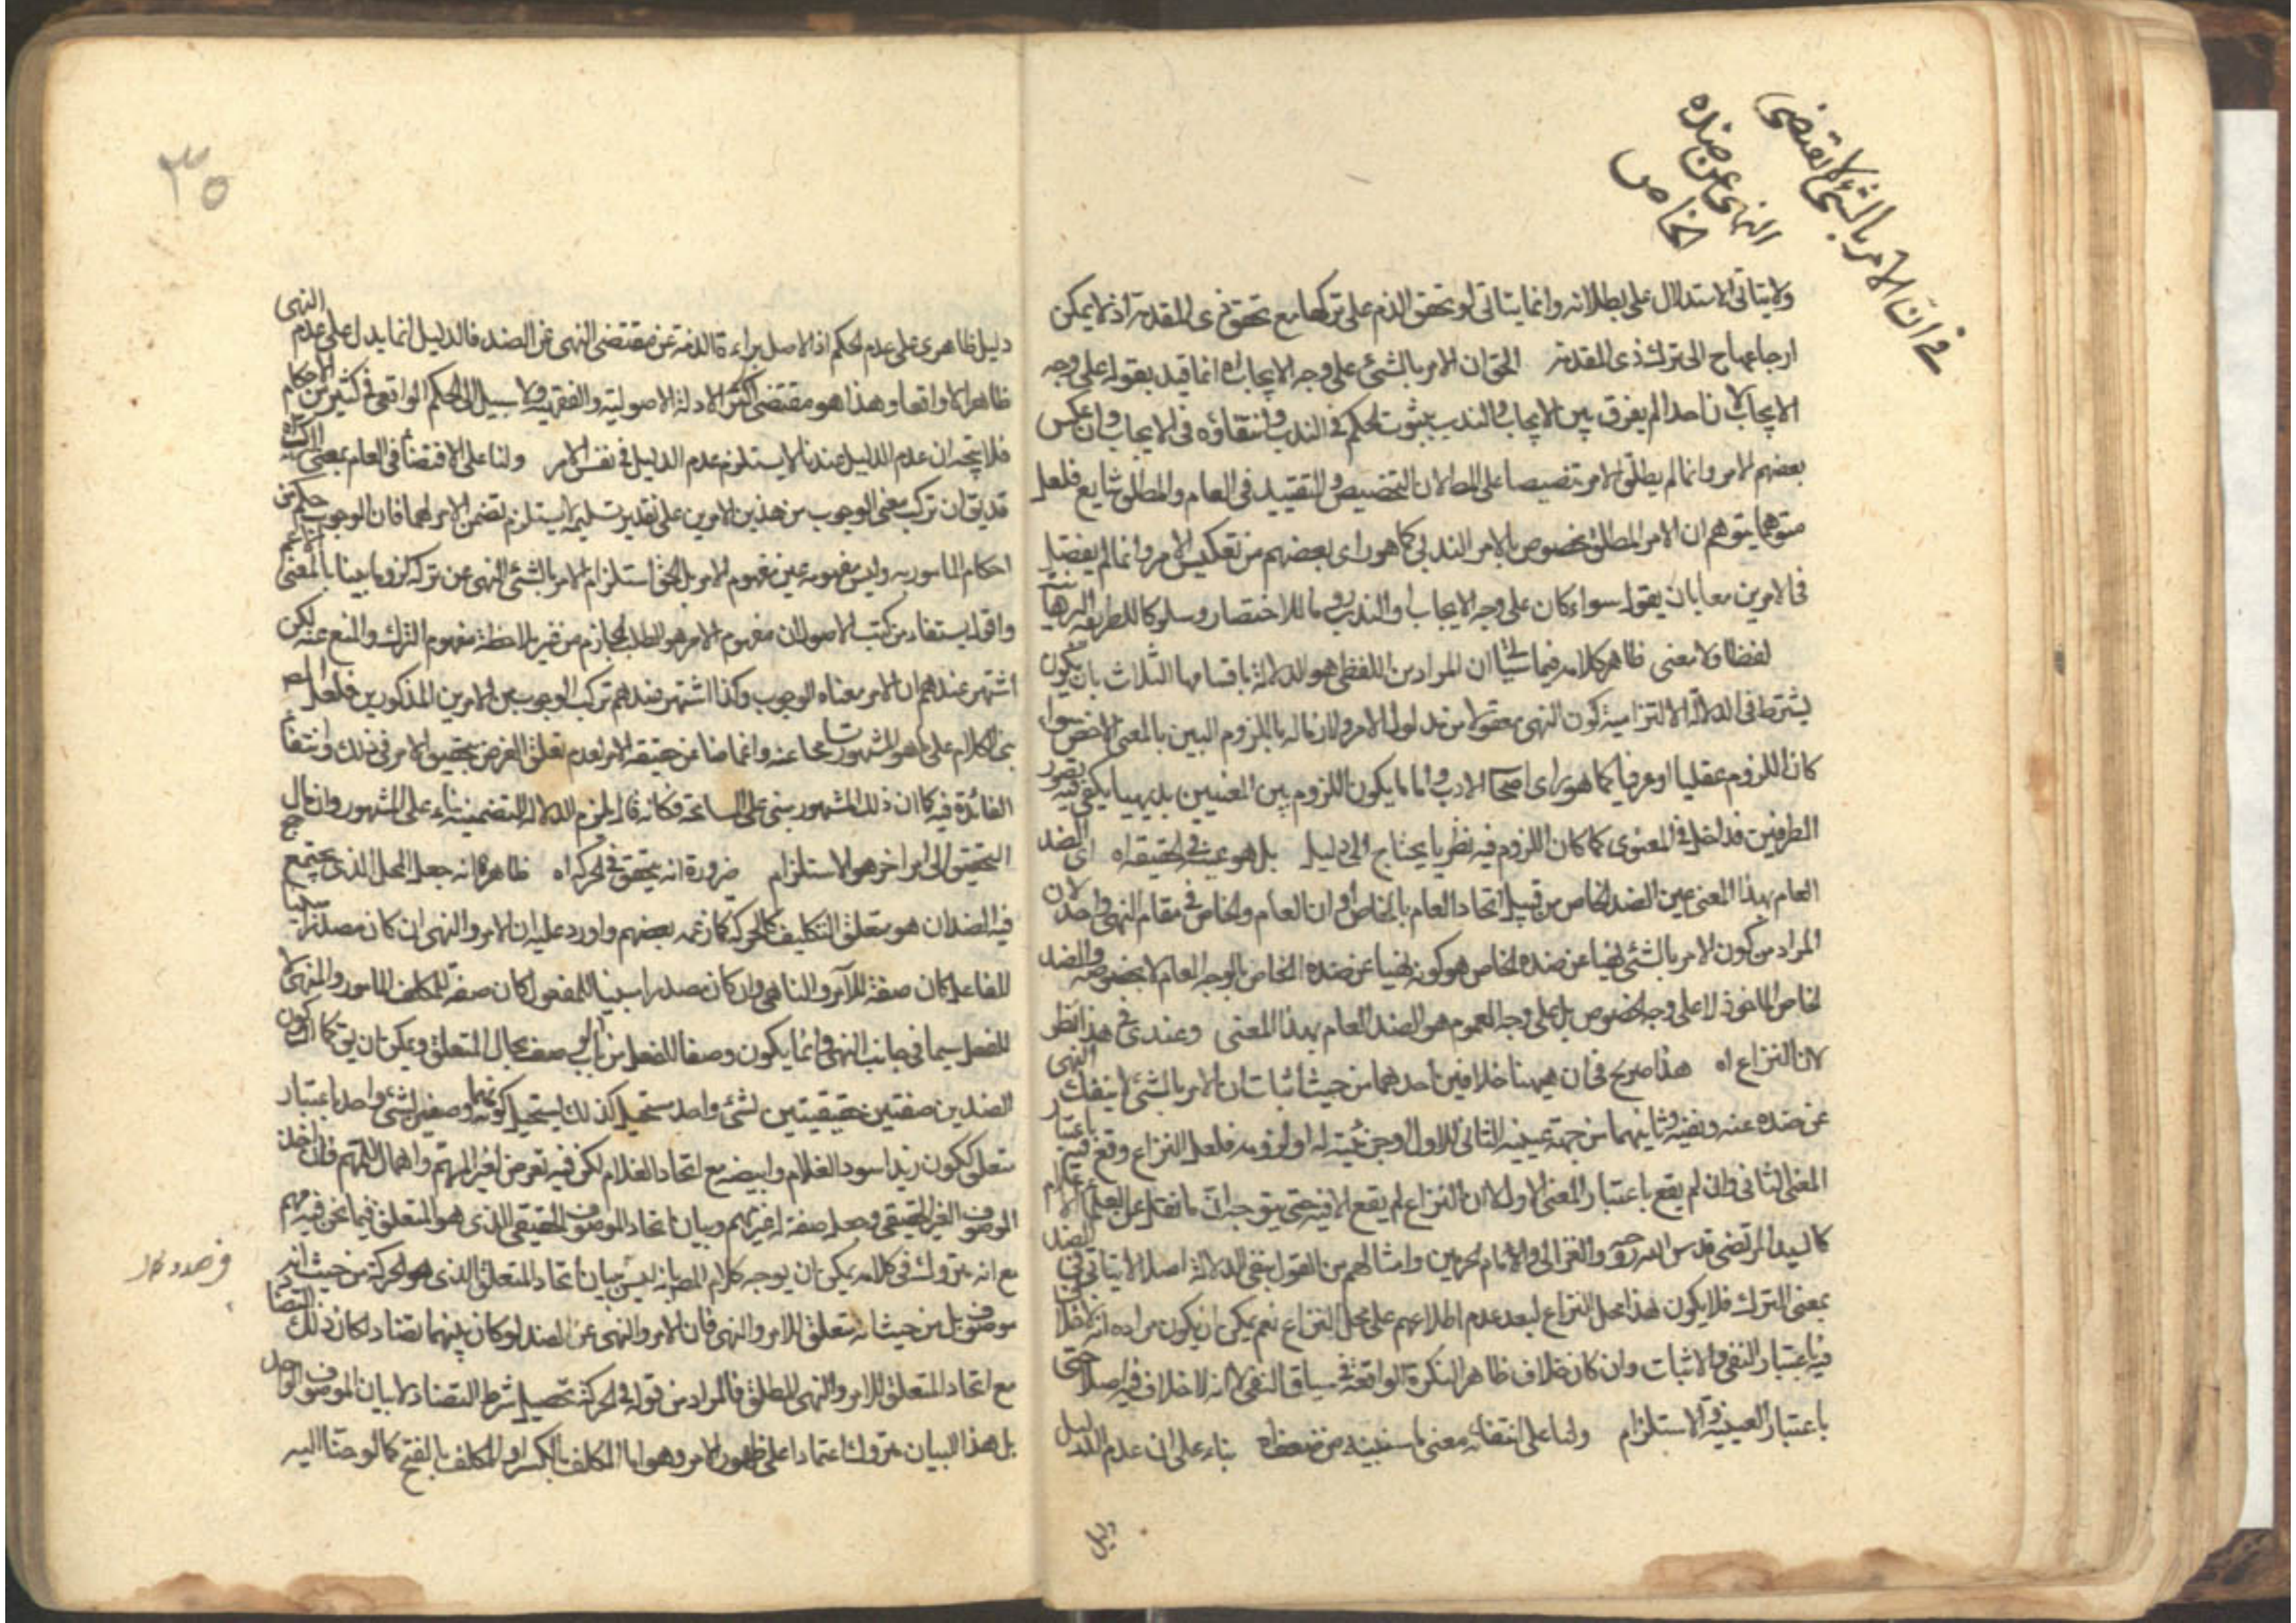 في ان الامر بالشئ لا يقتضى
النهى عن ضده
الخاص
ولا يتاتى الاستدلال على بطلانه وانما يتاتى لو تحقق الذم على تركها مع تحقق ذى المقدمة اذ لا يمكن
ارجاعها ح الى ترك ذى المقدمة الحق ان الامر بالشئ على وجه الايجاب اه انما قيد بقوله على وجه
الايجاب لان احدا لم يفرق بين الايجاب والندب بثبوت الحكم في الندب وانتفاؤه فى الايجاب وان عكس
بعضهم الامر وانما لم يطلق الامر تنصيصا على المط لان التخصيص والتقييد فى العام والمطلق شايع فلعل
متوهما يتوهم ان الامر المطلق مخصوص بالامر الندبى كما هو راى بعضهم من تعكيس الامر وانما لم يفصل
فى الامرين معا بان يقول سواء كان على وجه الايجاب او الندب روما للاختصار وسلوكا للطريقة البرهانية
لفظا ولا معنى ظاهر كلامه فيما سياتى ان المراد من اللفظى هو الدلالة باقسامها الثلاث بان يكون
يشترط فى الدلالة الالتزامية كون النهى معقولا من مدلول الامر ولازما له باللزوم البين بالمعنى الاخص سواء
كان اللزوم عقليا او عرفيا كما هو راى اصحاب الادب واما ما يكون اللزوم بين المعنيين بديهيا يكفى فيه تصور
الطرفين فداخل في المعنوى كما كان اللزوم فيه نظريا يحتاج الى دليل بل هو عينه في الحقيقة اه اى الضد
العام بهذا المعنى عين الضد الخاص من قبيل اتحاد العام بالخاص او ان العام والخاص في مقام النهى واحد لان
المراد من كون الامر بالشئ نهيا عن ضده الخاص هو كونه نهيا عن ضده الخاص بالوجه العام لا بخصوصه والضد
الخاص الماخوذ لا على وجه الخصوص بل على وجه العموم هو الضد العام بهذا المعنى وعندى في هذا نظر
لان النزاع اه هذا صريح فى ان ههنا خلافين احدهما من حيث اثبات ان الامر بالشئ لا ينفك النهى
عن ضده عنه ونفيه وثانيهما من جهة عينية الثانى للاول او جزئيته له او لزومه فلعل النزاع وقع فيه باعتبار
المعنى الثانى وان لم يقع باعتبار المعنى الاول الا ان النزاع لم يقع الا فيه حتى يتوجه ان ما نقل عن العلماء الاعلام
كالسيد المرتضى قدس الله روحه والغزالى والامام الحرمين وامثالهم من القول بنفى الدلالة اصلا لا يتاتى في الضد
بمعنى الترك فلا يكون هذا محل النزاع لبعد عدم اطلاعهم على محل النزاع نعم يمكن ان يكون مراده انه لا خلاف
فيه باعتبار النفى والاثبات وان كان خلاف ظاهر النكرة الواقعة في سياق النفى لا انه لا خلاف فيه اصلا حتى
باعتبار العينية والاستلزام ولنا على انتفائه معنى ما سنبينه من ضعف اه بناء على ان عدم الدليل
دليل
٣٥
دليل ظاهرى على عدم الحكم اذ الاصل براءة الذمة عن مقتضى النهى عن الضد فالدليل انما يدل على عدم النهى
ظاهرا لا واقعا وهذا هو مقتضى اكثر الادلة الاصولية والفقهية ولا سبيل الى الحكم الواقعى في كثير من الاحكام
فلا يتجه ان عدم الدليل عندنا لا يستلزم عدم الدليل في نفس الامر ولنا على الاقتضاء في العام بمعنى الترك اه
قد يق ان تركب معنى الوجوب من هذين الامرين على تقدير تسليمه لا يستلزم تضمن الامر لهما فان الوجوب حكم من
احكام المامور به وليس مفهومه عين مفهوم الامر بل الحق استلزام الامر بالشئ النهى عن تركه لزوما بينا بالمعنى الاعم
واقول يستفاد من كتب الاصول ان مفهوم الامر هو الطلب الجازم من غير ملاحظة مفهوم الترك والمنع عنه لكن
اشتهر عندهم ان الامر معناه الوجوب وكذا اشتهر عندهم تركب الوجوب من الامرين المذكورين فلعل المص
بنى الكلام على ما هو المشهور تسامحا عنه واغماضا عن حقيقة الامر لعدم تعلق الغرض بتحقيق الامر في ذلك وانتفاء
الفائدة فيه كما ان ذلك المشهور مبنى على المسامحة فكانه قد يلزم الدلالة التضمنية بناء على المشهور وان مال
التحقيق الى امر اخر هو الاستلزام ضرورة انه يتحقق في الحركة اه ظاهره انه جعل المحل الذى يجتمع
فيه الضدان هو متعلق التكليف كالحركة كما زعمه بعضهم واورد عليه ان الامر والنهى ان كان مصدرا مبنيا
للفاعل كان صفة للآمر والناهى وان كان مصدرا مبنيا للمفعول كان صفة للمكلف المامور والمنهى لا
للفعل سيما فى جانب النهى وانما يكون وصفا للفعل من باب الوصف بحال المتعلق ويمكن ان يق كما ان كون
الضدين صفتين حقيقيتين لشئ واحد مستحيل كذلك يستحيل كونهما وصفين لشئ واحد باعتبار
متعلق ككون زيد اسود الغلام وابيضه مع اتحاد الغلام لكن فيه تعرض لغير المهم واهمال للمهم فان اخذ
الموصوف الغير الحقيقى وجعله صفة له غير مهم وبيان اتحاد الموصوف الحقيقى الذى هو المتعلق فيما نحن فيه مهم
مع انه متروك فى كلامه يمكن ان يوجه كلام المص بانه ليس بيان اتحاد المتعلق الذى هو الحركة من حيث انه
موصوف بل من حيث انه متعلق للامر والنهى فان الامر والنهى عن الضد لو كان بينهما تضاد لكان ذلك التضاد
مع اتحاد المتعلق للامر والنهى المطلق فالمراد من قوله في الحركة تحصيل شرط التضاد لا بيان الموصوف الواحد
بل هذا البيان متروك اعتمادا على ظهور الامر وهو اما المكلف بالكسر او المكلف بالفتح كما لوحنا اليه